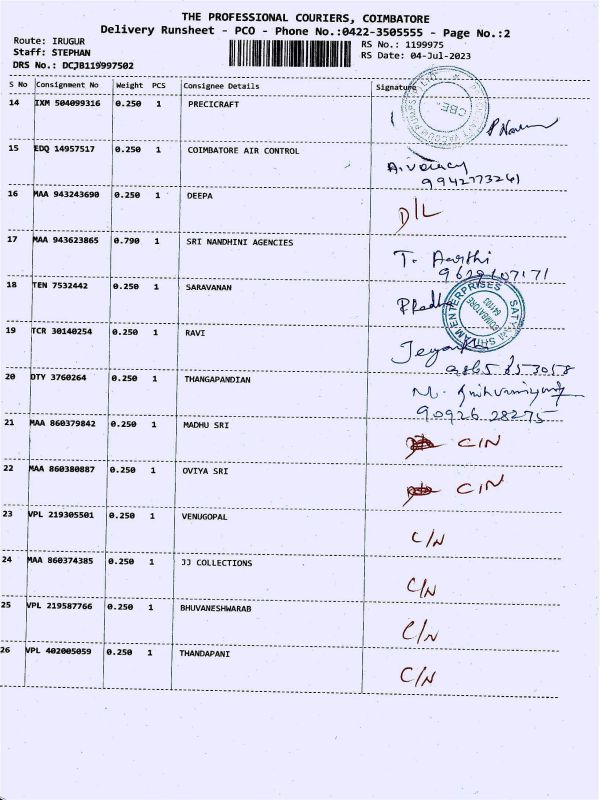 THE PROFESSIONAL COURIERS, COIMBATORE
Delivery Runsheet - PCO - Phone No.:0422-3505555 - Page No.:2
Route: IRUGUR RS No.: 1199975
Staff: STEPHAN RS Date: 04-Jul-2023
DRS No.: DCJB119997502
S No Consignment No Weight PCS Consignee Details Signature
14 IXM 504099316 0.250 1 PRECICRAFT
CBE
15 EDQ 14957517 0.250 1 COIMBATORE AIR CONTROL
9942773261
16 MAA 943243690 0.250 1 DEEPA D/L
17 MAA 943623865 0.790 1 SRI NANDHINI AGENCIES
T. Aarthi
18 TEN 7532442 0.250 1 SARAVANAN
SATYAM SHIVAM ENTERPRISES
COIMBATORE
19 TCR 30140254 0.250 1 RAVI
20 DTY 3760264 0.250 1 THANGAPANDIAN
90926 28275
21 MAA 860379842 0.250 1 MADHU SRI C/N
22 MAA 860380887 0.250 1 OVIYA SRI C/N
23 VPL 219305501 0.250 1 VENUGOPAL C/N
24 MAA 860374385 0.250 1 JJ COLLECTIONS C/N
25 VPL 219587766 0.250 1 BHUVANESHWARAB C/N
26 VPL 402005059 0.250 1 THANDAPANI C/N